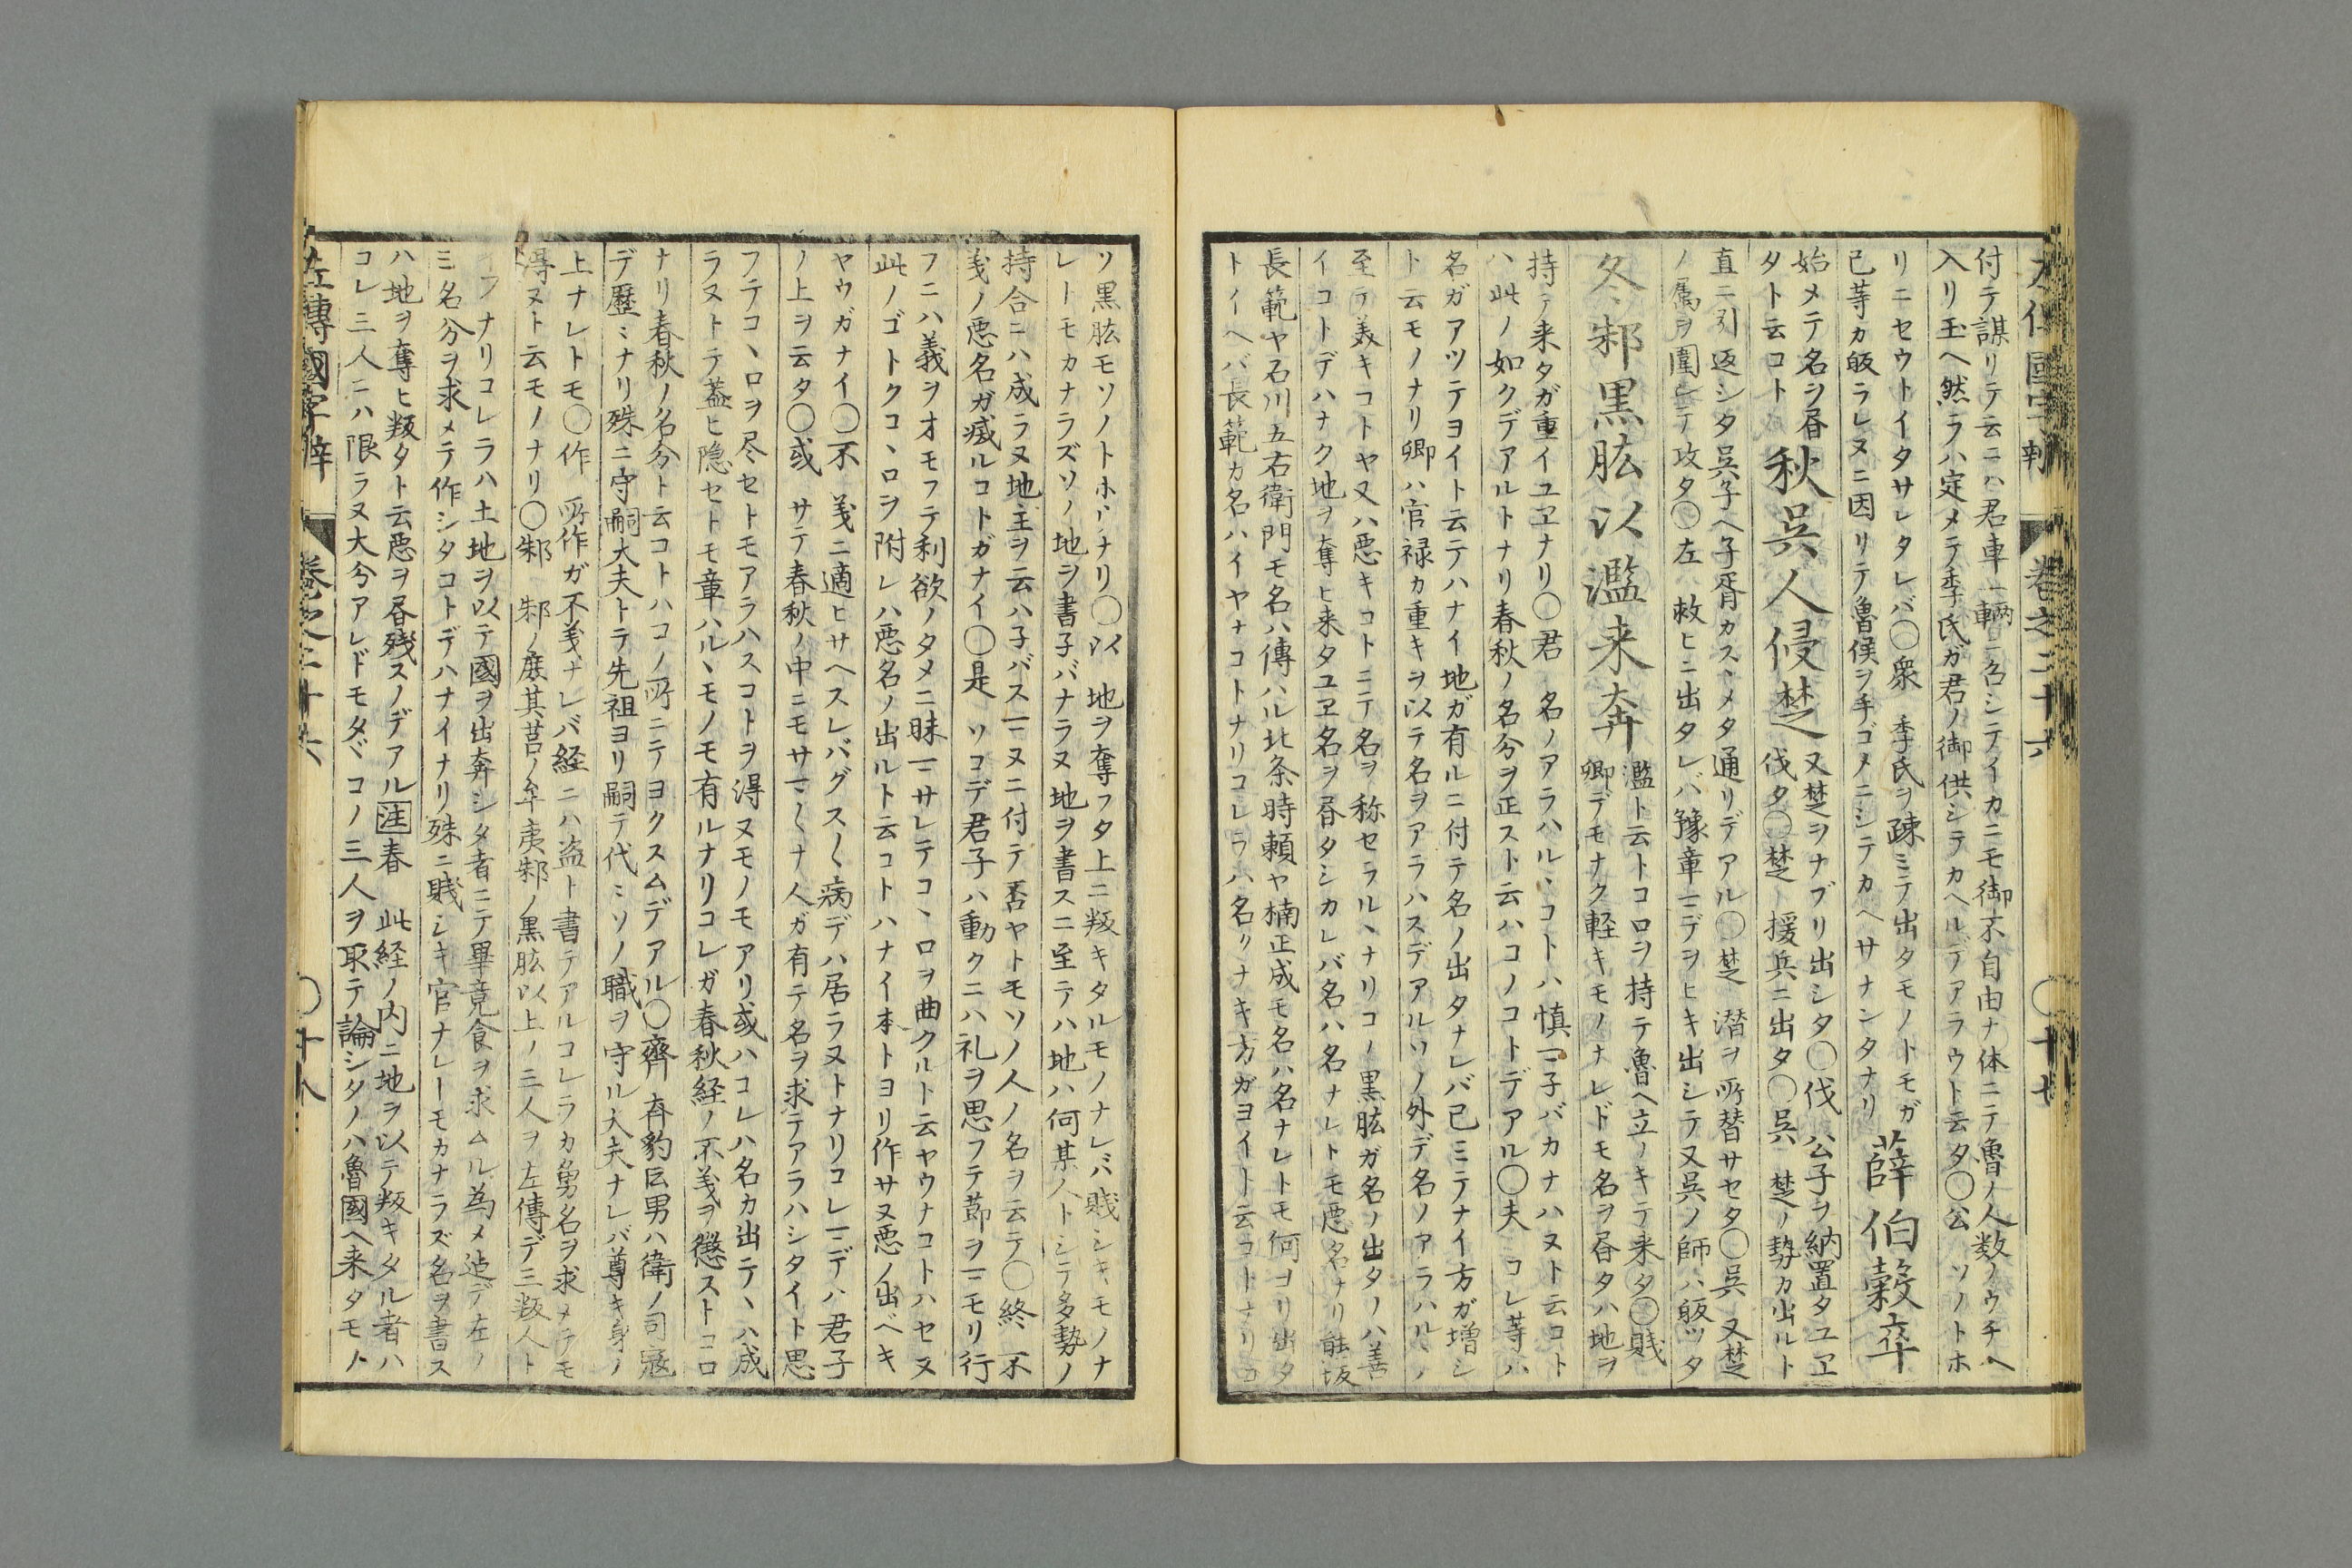 左傳國字辨 卷之二十六 〇十七
付テ謀リテ云ニハ君車一輌ニ召シテイカニモ御不自由ナ体ニテ魯ノ人数ノウチヘ
入リ玉ヘ然ラハ定メテ季氏ガ君ノ御供シテカヘルデアラウト云タ〇公 ソノトホ
リニセウトイタサレタレバ〇衆 季氏ヲ疎ミテ出タモノトモガ
已䓁カ皈ラレヌニ因リテ魯侯ヲ手ゴメニシテカヘサナンタナリ
薛伯穀卒
始メテ名ヲ昏
タト云コト
秋呉人侵楚
又楚ヲナブリ出シタ〇伐 公子ヲ納置タユヱ
伐タ〇楚 援兵ニ出タ〇呉 楚ノ勢カ出ルト
直ニ引返シタ呉子ヘ子胥カスヽメタ通リデアル〇楚 潜ヲ所替サセタ〇呉 又楚
ノ属ヲ圍ンテ攻タ〇左 救ヒニ出タレバ豫章マデヲヒキ出シテ又呉ノ師ハ皈ツタ
冬邾黒肱以濫来奔
濫ト云トコロヲ持テ魯ヘ立ノキテ来タ〇賎
卿デモナク軽キモノナレドモ名ヲ昏タハ地ヲ
持テ来タガ重イユヱナリ〇君 名ノアラハルヽコトハ慎マ子バカナハヌト云コト
ハ此ノ如クデアルトナリ春秋ノ名分ヲ正スト云ハコノコトデアル〇夫 コレ䓁ハ
名ガアツテヨイト云テハナイ地ガ有ルニ付テ名ノ出タナレバ已ミテナイ方ガ増シ
ト云モノナリ卿ハ官禄カ重キヲ以テ名ヲアラハスデアルソノ外デ名ソアラハルヽノ
至テ美キコトヤ又ハ悪キコトニテ名ヲ称セラルヽナリコノ黒肱ガ名ノ出タノハ善
イコトデハナク地ヲ奪ヒ来タユヱ名ヲ昏タシカレバ名ハ名ナレトモ悪名ナリ熊坂
長範ヤ石川五右衛門モ名ハ傳ハル北条時頼ヤ楠正成モ名ハ名ナレトモ何ヨリ出タ
トイヘバ長範カ名ハイヤナコトナリコレラハ名ノナキ方ガヨイト云コトナリコ
ソ黒肱モソノトホリナリ〇以 地ヲ奪フタ上ニ叛キタルモノナレバ賎シキモノナ
レトモカナラズソノ地ヲ書子バナラヌ地ヲ書スニ至テハ地ハ何某人トシテ多勢ノ
持合ニハ成ラヌ地主ヲ云ハ子バスマヌニ付テ否ヤトモソノ人ノ名ヲ云テ〇終 不
義ノ悪名ガ滅ルコトガナイ〇是 ソコデ君子ハ動クニハ礼ヲ思フテ節ヲマモリ行
フニハ義ヲオモフテ利欲ノタメニ昧マサレテコヽロヲ曲クルト云ヤウナコトハセヌ
此ノゴトクコヽロヲ附レハ悪名ノ出ルト云コトハナイ本トヨリ作サヌ悪ノ出ベキ
ヤウガナイ〇不 義ニ適ヒサヘスレバグス〱病デハ居ラヌトナリコレマデハ君子
ノ上ヲ云タ〇或 サテ春秋ノ中ニモサマ〱ナ人ガ有テ名ヲ求テアラハシタイト思
フテコヽロヲ尽セトモアラハスコトヲ淂ヌモノモアリ或ハコレハ名カ出テヽハ成
ラヌトテ葢ヒ隠セトモ章ハルヽモノモ有ルナリコレガ春秋経ノ不義ヲ懲ストコロ
ナリ春秋ノ名分ト云コトハコノ所ニテヨクスムデアル〇齊 斉豹臣男ハ衛ノ司寇
デ歴ミナリ殊ニ守嗣大夫トテ先祖ヨリ嗣テ代ミソノ職ヲ守ル大夫ナレバ尊キ身ノ
上ナレトモ〇作 所作ガ不義ナレバ経ニハ盗ト書テアルコレラカ勇名ヲ求メテモ
淂ヌト云モノナリ〇邾 邾ノ庶其莒ノ牟夷邾ノ黒肱以上ノ三人ヲ左傳デ三叛人ト
フナリコレラハ土地ヲ以テ國ヲ出奔シタ者ニテ畢竟食ヲ求ムル為メ迠デ左ノ
ミ名分ヲ求メテ作シタコトデハナイナリ殊ニ賎シキ官ナレトモカナラズ名ヲ書ス
ハ地ヲ奪ヒ叛タト云悪ヲ昏残スノデアル注春 此経ノ内ニ地ヲ以テ叛キタル者ハ
コレ三人ニハ限ラヌ大分アレドモタヾコノ三人ヲ取テ論シタノハ魯國ヘ来タモノ
左傳國字辨 卷之二十六 〇十八